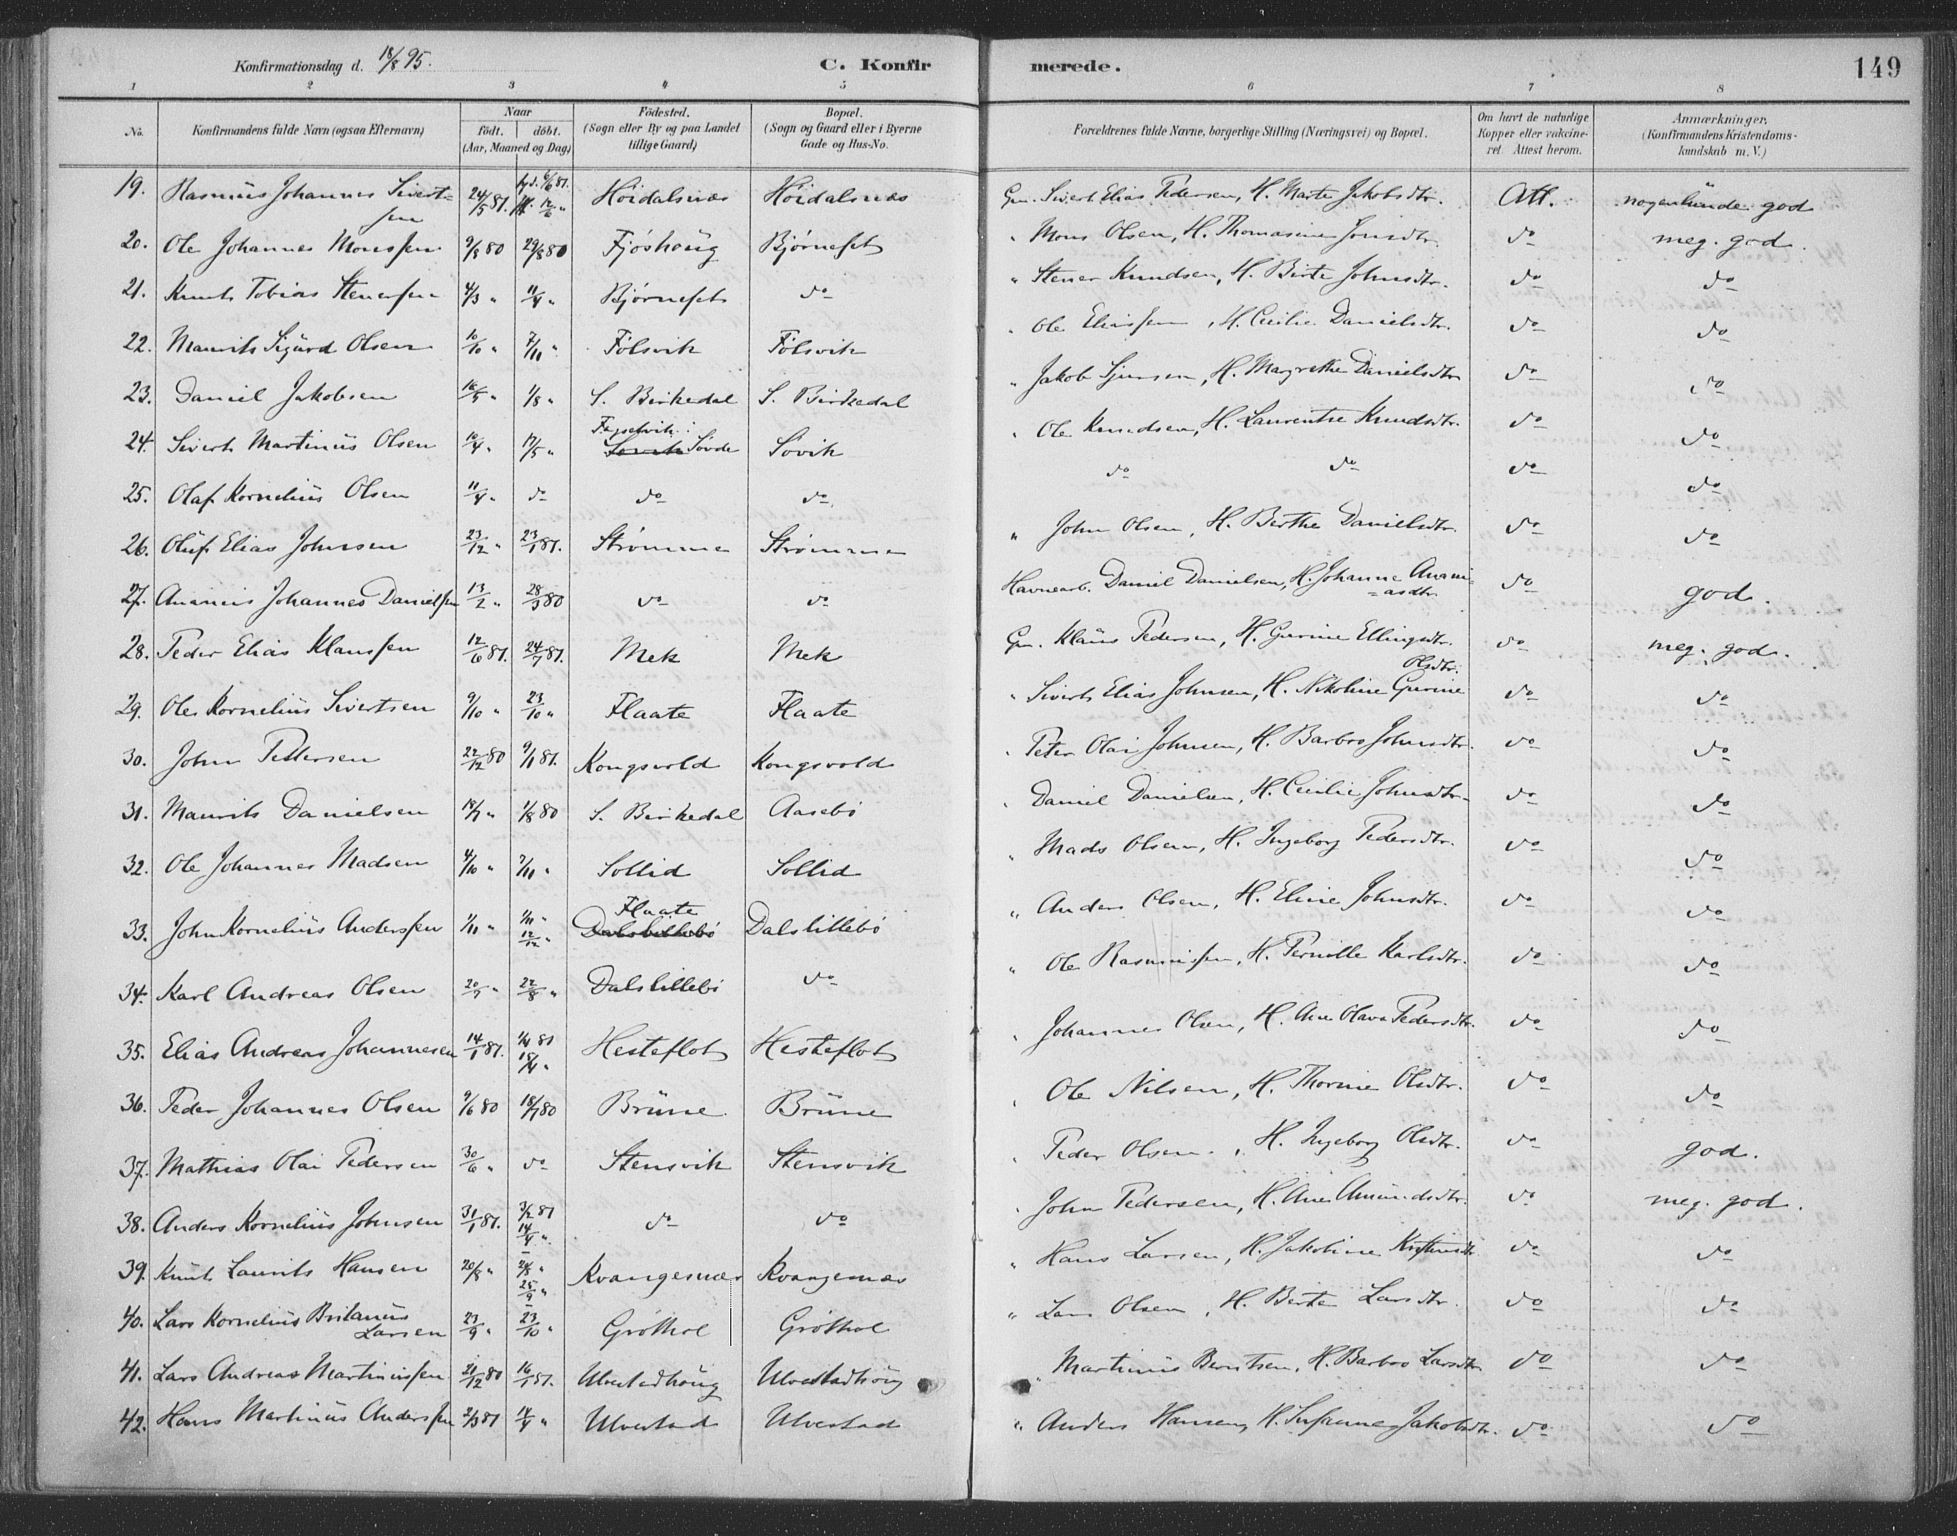 Konfirmationsdag d. 18/8 95.
C. Konfirmerede.
149
1 2 3 4 5 6 7 8
No. | Konfirmandens fulde Navn (ogsaa Efternavn) | Naar födt. | döbt. (Aar, Maaned og Dag) | Födested. (Sogn eller By og paa Landet tillige Gaard) | Bopæl. (Sogn og Gaard eller i Byerne Gade og Hus-No. | Forældrenes fulde Navne, borgerlige Stilling (Næringsvei) og Bopæl. | Om havt de naturlige Kopper eller vakcineret. Attest herom. | Anmærkninger. (Konfirmandens Kristendomskundskab m. V.)
19. Rasmus Johannes Sivertsen | 24/5 81. | hjd. 6/6 81. 12/6 " | Höidalsnæs | Höidalsnæs | Gm. Sivert Elias Pedersen, H. Marte Jakobsdtr. | Att. | nogenlunde god
20. Ole Johannes Monssen | 9/8 80 | 29/8 80 | Fjöshoug | Bjørneset | " Mons Olsen, H. Thomasine Jonsdtr. | do | meg. god.
21. Knut Tobias Stenersen | 4/3 " | 11/4 " | Bjørneset | do | " Stener Knudsen, H. Birte Johnsdtr. | do | do
22. Maurits Sigurd Olsen | 10/10 " | 7/11 " | Fölsvik | Fölsvik | " Ole Eliassen, H. Cecilie Danielsdtr. | do | do
23. Daniel Jakobsen | 16/5 " | 1/8 " | S. Birkedal | S. Birkedal | " Jakob Sjursen, H. Margrethe Danielsdtr | do | do
24. Sivert Martinus Olsen | 10/4 " | 17/5 " | Sövde | Sövik | " Ole Knudsen, H. Laurentse Knudsdtr. | do | do
25. Olaf Kornelius Olsen | 11/4 " | do | do | do. | do | do | do | do
26. Oluf Elias Johnsen | 23/12 " | 23/1 81. | Strömmen | Strömmen | " John Olsen, H. Berthe Danielsdtr. | do | do
27. Ananias Johannes Danielsen | 13/2 " | 28/3 80 | do | do | Havnearb. Daniel Danielsen, H. Johanne Ananiasdtr. | do | god.
28. Peder Elias Klaussen | 12/6 81. | 24/7 81. | Mek | Mek | Gm. Klaus Pedersen, H. Gurine Ellingsdtr. | do | meg. god.
29. Ole Kornelius Sivertsen | 9/10 " | 23/10 " | Flaate | Flaate | " Sivert Elias Johnsen, H. Nikoline Gurine Olsdtr. | do | do
30. John Pettersen | 22/12 80 | 9/1 81. | Kongsvold | Kongsvold | " Peter Olai Johnsen, H. Barbro Johnsdtr. | do | do
31. Maurits Danielsen | 18/7 " | 1/8 80 | S. Birkedal | Aasebö | " Daniel Danielsen, H. Cecilie Johnsdtr. | do | do
32. Ole Johannes Madsen | 4/10 " | 7/11 " | Sollid | Sollid | " Mads Olsen, H. Ingeborg Pedersdtr. | do | do
33. John Kornelius Anderssen | 1/11 " | 1/11 " 12/12 " | Flaate Dalslillebö | Dalslillebö | " Anders Olsen, H. Eline Johnsdtr. | do | do
34. Karl Andreas Olsen | 20/7 " | 22/8 " | Dalslillebö | do | " Ole Rasmussen, H. Pernille Karlsdtr. | do | do
35. Elias Andreas Johannesen | 14/1 81. | 1/4 81 18/4 " | Hesteflot | Hesteflot | " Johannes Olsen, H. Ane Olava Pedersdtr. | do | do
36. Peder Johannes Olsen | 9/6 80 | 18/7 80 | Brune | Brune | " Ole Nilsen, H. Thorine Olsdtr. | do | do
37. Mathias Olai Pedersen | 30/6 " | do | Stensvik | Stensvik | " Peder Olsen, H. Ingeborg Olsdtr. | do | god.
38. Anders Kornelius Johnsen | 31/1 81. | 3/2 81 14/4 " | do | do | " John Pedersen, H. Ane Amundsdtr. | do | meg. god.
39. Knut Laurits Hansen | 20/8 " | 21/8 " 25/9 " | Kvangesnæs | Kvangesnæs | " Hans Larsen, H. Jakobine | do | do
40. Lars Kornelius Britanus Larsen | 23/9 " | 23/10 " | Gröthol | Gröthol | " Lars Olsen, H. Berte Larsdtr. | do | do
41. Lars Andreas Martinussen | 21/12 80 | 16/1 81. | Ulvestadhoug | Ulvestadhoug | " Martinus Berntsen, H. Barbro Larsdtr. | do | do
42. Hans Martinus Anderssen | 2/3 81 | 14/4 " | Ulvestad | Ulvestad | " Anders Hansen, H. Susanne Jakobsdtr. | do | do